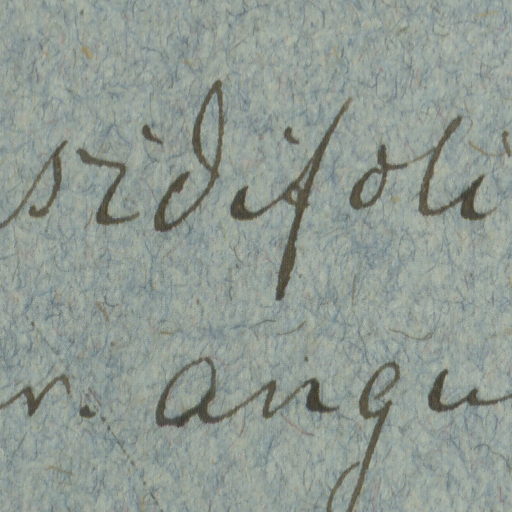 sidifoli
v. angu